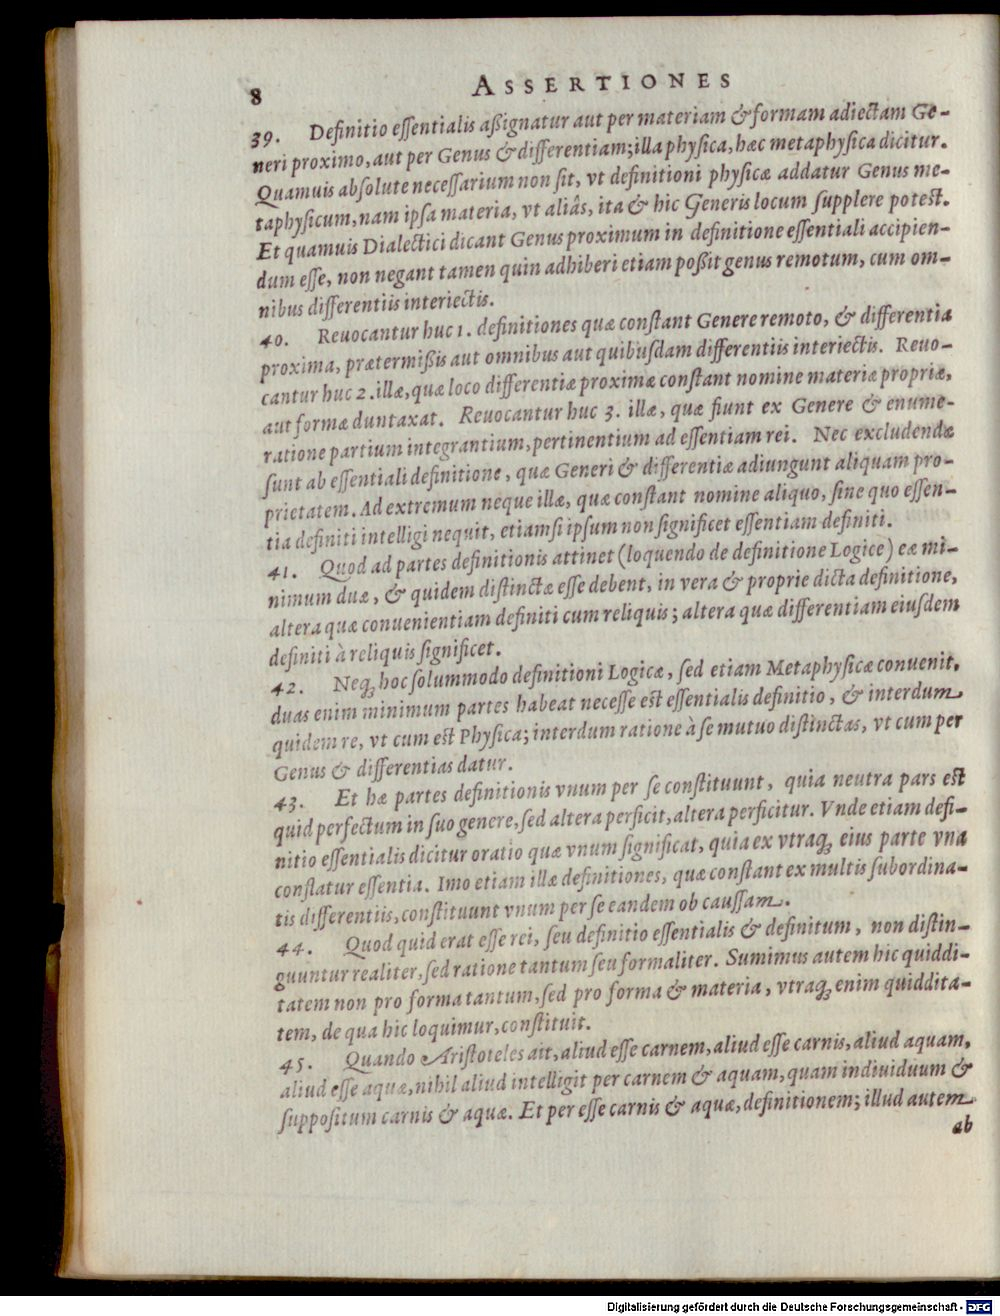 8 ASSERTIONES
39. Definitio eſſentialis aßignatur aut per materiam & formam adiectam Ge-
neri proximo, aut per Genus & differentiam; illa phyſica, hæc metaphyſica dicitur.
Quamuis abſolute neceſſarium non ſit, vt definitioni phyſicæ addatur Genus me-
taphyſicum, nam ipſa materia, vt aliâs, ita & hic Generis locum ſupplere poteſt.
Et quamuis Dialectici dicant Genus proximum in definitione eſſentiali accipien-
dum eſſe, non negant tamen quin adhiberi etiam poßit genus remotum, cum om-
nibus differentiis interiectis.
40. Reuocantur huc 1. definitiones quæ conſtant Genere remoto, & differentia
proxima, prætermißis aut omnibus aut quibuſdam differentiis interiectis. Reuo-
cantur huc 2. illæ, quæ loco differentiæ proximæ conſtant nomine materiæ propriæ,
aut formæ duntaxat. Reuocantur huc 3. illæ, quæ fiunt ex Genere & enume-
ratione partium integrantium, pertinentium ad eſſentiam rei. Nec excludendæ
ſunt ab eſſentiali definitione, quæ Generi & differentiæ adiungunt aliquam pro-
prietatem. Ad extremum neque illæ, quæ conſtant nomine aliquo, ſine quo eſſen-
tia definiti intelligi nequit, etiamſi ipſum non ſignificet eſſentiam definiti.
41. Quod ad partes definitionis attinet (loquendo de definitione Logice) eæ mi-
nimum duæ, & quidem diſtinctæ eſſe debent, in vera & proprie dicta definitione,
altera quæ conuenientiam definiti cum reliquis; altera quæ differentiam eiuſdem
definiti à reliquis ſignificet.
42. Neq; hoc ſolummodo definitioni Logicæ, ſed etiam Metaphyſicæ conuenit,
duas enim minimum partes habeat neceſſe eſt eſſentialis definitio, & interdum
quidem re, vt cum eſt Phyſica; interdum ratione à ſe mutuo diſtinctas, vt cum per
Genus & differentias datur.
43. Et hæ partes definitionis vnum per ſe conſtituunt, quia neutra pars eſt
quid perfectum in ſuo genere, ſed altera perficit, altera perficitur. Vnde etiam defi-
nitio eſſentialis dicitur oratio quæ vnum ſignificat, quia ex vtraq; eius parte vna
conflatur eſſentia. Imo etiam illæ definitiones, quæ conſtant ex multis ſubordina-
tis differentiis, conſtituunt vnum per ſe eandem ob cauſſam.
44. Quod quid erat eſſe rei, ſeu definitio eſſentialis & definitum, non diſtin-
guuntur realiter, ſed ratione tantum ſeu formaliter. Sumimus autem hic quiddi-
tatem non pro forma tantum, ſed pro forma & materia, vtraq; enim quiddita-
tem, de qua hic loquimur, conſtituit.
45. Quando Ariſtoteles ait, aliud eſſe carnem, aliud eſſe carnis, aliud aquam,
aliud eſſe aquæ, nihil aliud intelligit per carnem & aquam, quam indiuiduum &
ſuppoſitum carnis & aquæ. Et per eſſe carnis & aquæ, definitionem; illud autem
ab
Digitalisierung gefördert durch die Deutsche Forschungsgemeinschaft - DFG